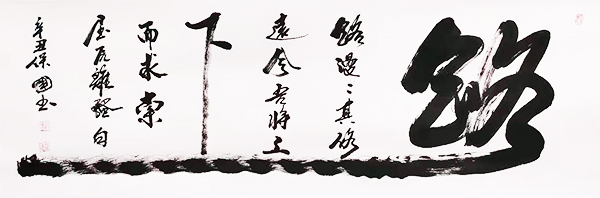 路
路漫々其修
遠兮吾将上
下
而求索
屈原離騷句
辛丑保國书